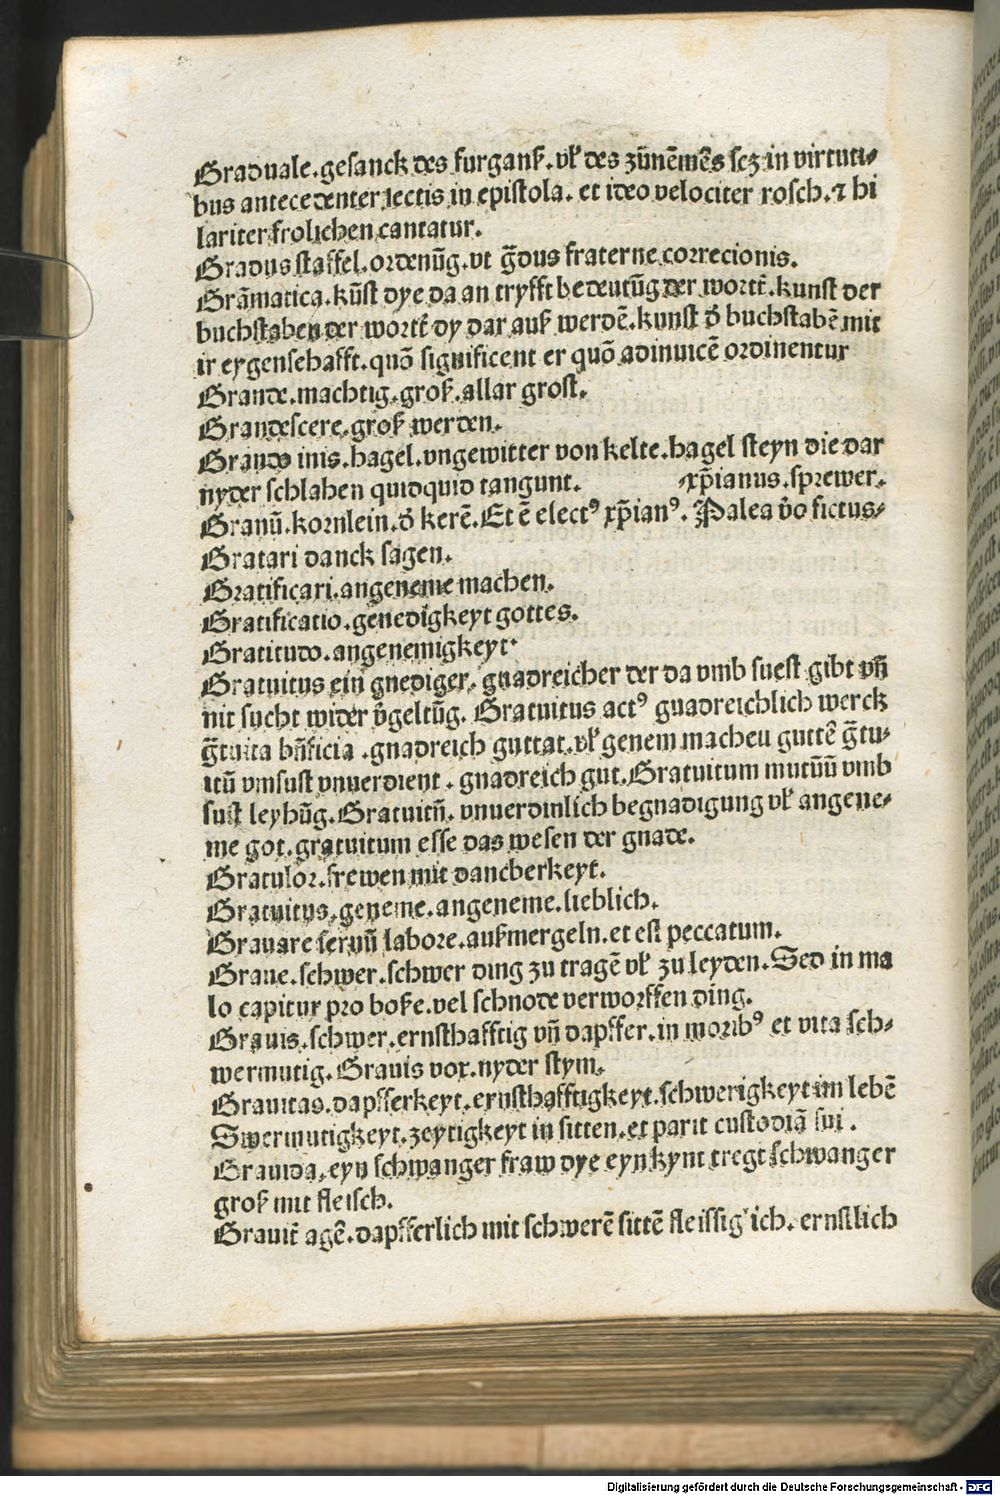 Graduale.gesanck des furganſz.vľ des zůnemēs ſcz in virtuti⸗
bus antecedenter lectis in epiſtola. et ideo velociter roſch.⁊ hi
lariter frolichen cantatur.
Gradus ſtaffel.ordenūg.vt g̃dus fraterne correcionis.
Grāmatica.kūſt dye da an tryfft bedeutūg der wortẽ.kunſt der
buchſtaben der wortẽ dy dar auſz werdē.kunſt ď buchſtabē mit
ir eygenſchafft.quō ſignificent er quō adinuicē ordinentur
Grande.machtig.groſz.allar groſt.
Grandeſcere.groſz werden.
Grando inis.hagel.vngewitter von kelte.hagel ſteyn die dar
nyder ſchlahen quidquid tangunt. ⸗xp̄ianus.ſprewer.
Granū.kornlein.ď kerē.Et ē electꝰ xp̄ianꝰ. Palea v̊o fictus⸗
Gratari danck ſagen.
Gratificari.angeneme machen.
Gratificatio.genedigkeyt gottes.
Gratitudo.angenemigkeyt.
Gratuitus ein gnediger. gnadreicher der da vmb ſuſt gibt vñ
nit ſucht wider v̊geltūg. Gratuitus actꝰ gnadreichlich werck
g̃tuita bñficia .gnadreich guttat.vľ genem macheu guttē g̃tu⸗
itū vmſuſt vnuerdient . gnadreich gut.Gratuitum mutūū vmb
ſuſt leyhūg.Gratuitū. vnuerdinlich begnadigung vľ angene⸗
me got.gratuitum eſſe das weſen der gnade.
Gratulor.frewen mit danckberkeyt.
Gratuitus.geneme.angeneme.lieblich.
Grauare ſeruū labore.auſzmergeln.et eſt peccatum.
Graue.ſchwer.ſchwer ding zu tragē vľ zu leyden.Sed in ma
lo capitur pro boſze.vel ſchnode verworffen ding.
Grauis.ſchwer.ernſthafftig vñ dapffer.in moribꝰ et vita ſch⸗
wermutig. Grauis vox.nyder ſtym.
Grauitas.dapfferkeyt.ernſthafftigkeyt.ſchwerigkeyt im lebē
Swermutigkeyt.zeytigkeyt in ſitten.et parit cuſtodiā ſui .
Grauida.eyn ſchwanger fraw dye eyn kynt tregt ſchwanger
groſz mit fleiſch.
Grauit̃ agē.dapfferlich mit ſchwerē ſittē fleiſſig'ich. ernſtlich
Digitalisierung gefördert durch die Deutsche Forschungsgemeinschaft - DFG